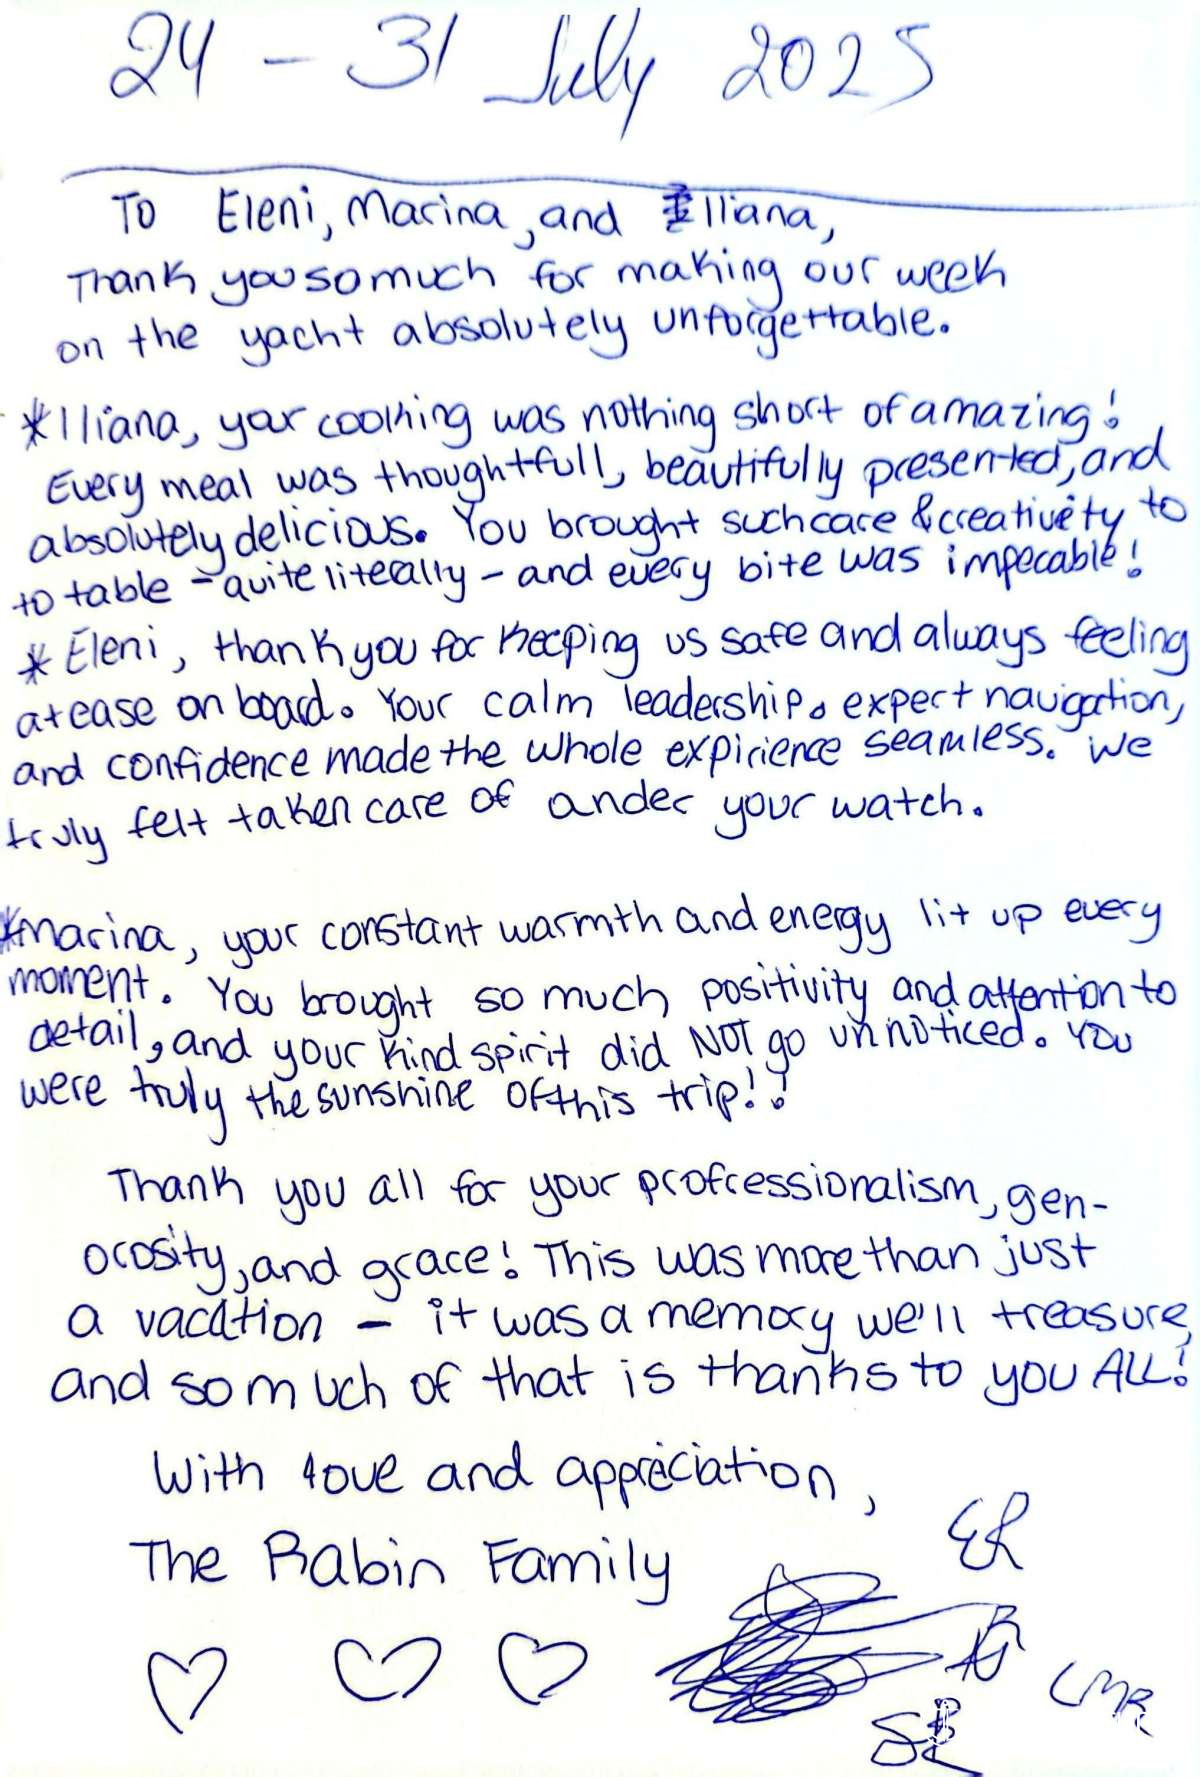 24 - 31 July 2025
To Eleni, Marina, and Iliana,
Thank you so much for making our week
on the yacht absolutely unforgettable.
*Iliana, your cooking was nothing short of amazing!
Every meal was thoughtfull, beautifully presented, and
absolutely delicious. You brought such care & creativety to
to table - quite literally - and every bite was impecable!
* Eleni, thank you for keeping us safe and always feeling
at ease on board. Your calm leadership, expert navigation,
and confidence made the whole expirience seamless. We
truly felt taken care of under your watch.
*Marina, your constant warmth and energy lit up every
moment. You brought so much positivity and attention to
detail, and your kind spirit did NOT go unnoticed. You
were truly the sunshine of this trip!!
Thank you all for your profressionalism, gen-
orosity, and grace! This was more than just
a vacation - it was a memory we'll treasure,
and so much of that is thanks to you ALL!
With love and appreciation,
The Rabin Family
ER
LMR